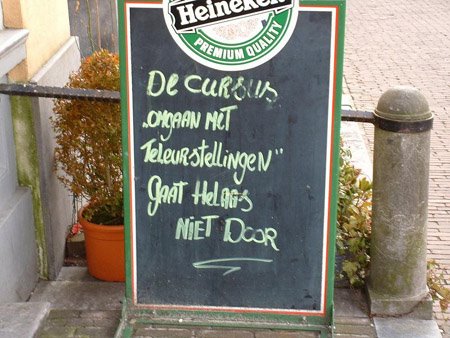 Heineken
PREMIUM QUALITY
De CURSUS
„OMGAAN MET
TeleuRstellingeN"
gAAt HelAAs
NiET DooR